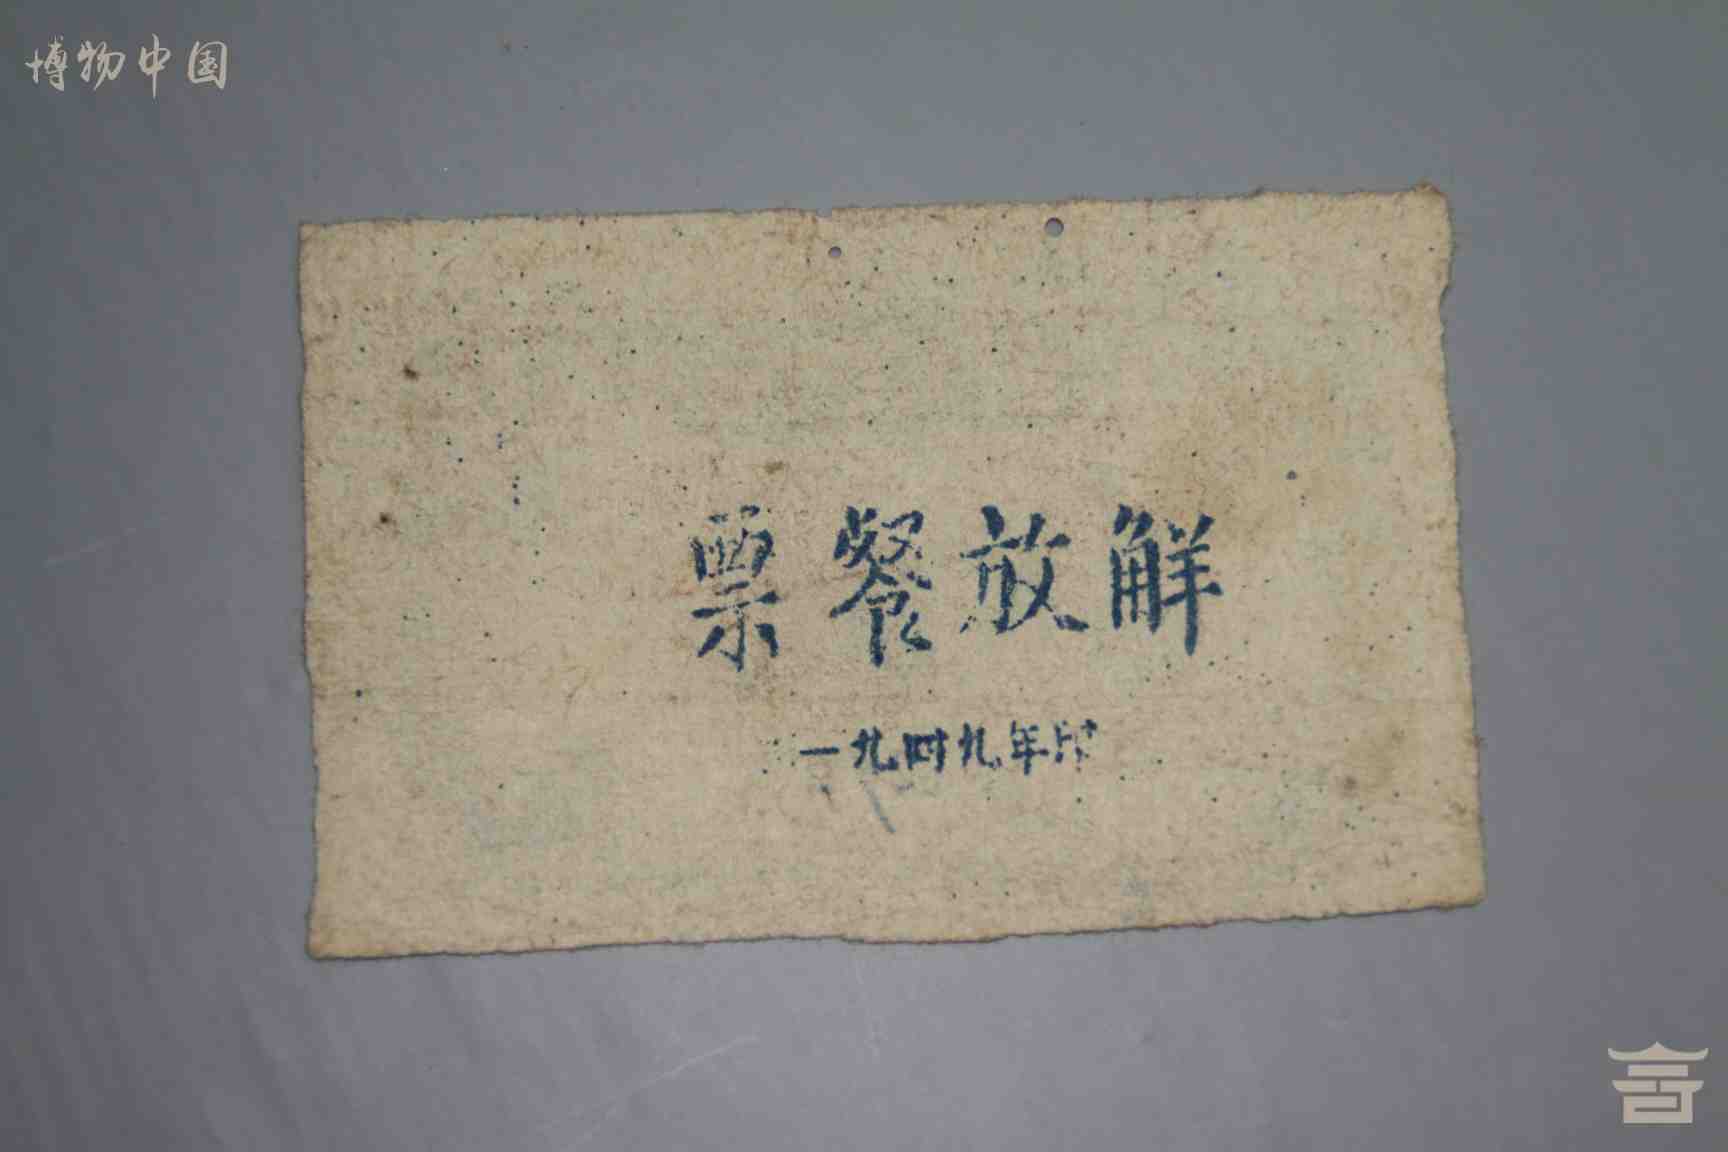 博物中国
解放餐票
一九四九年印